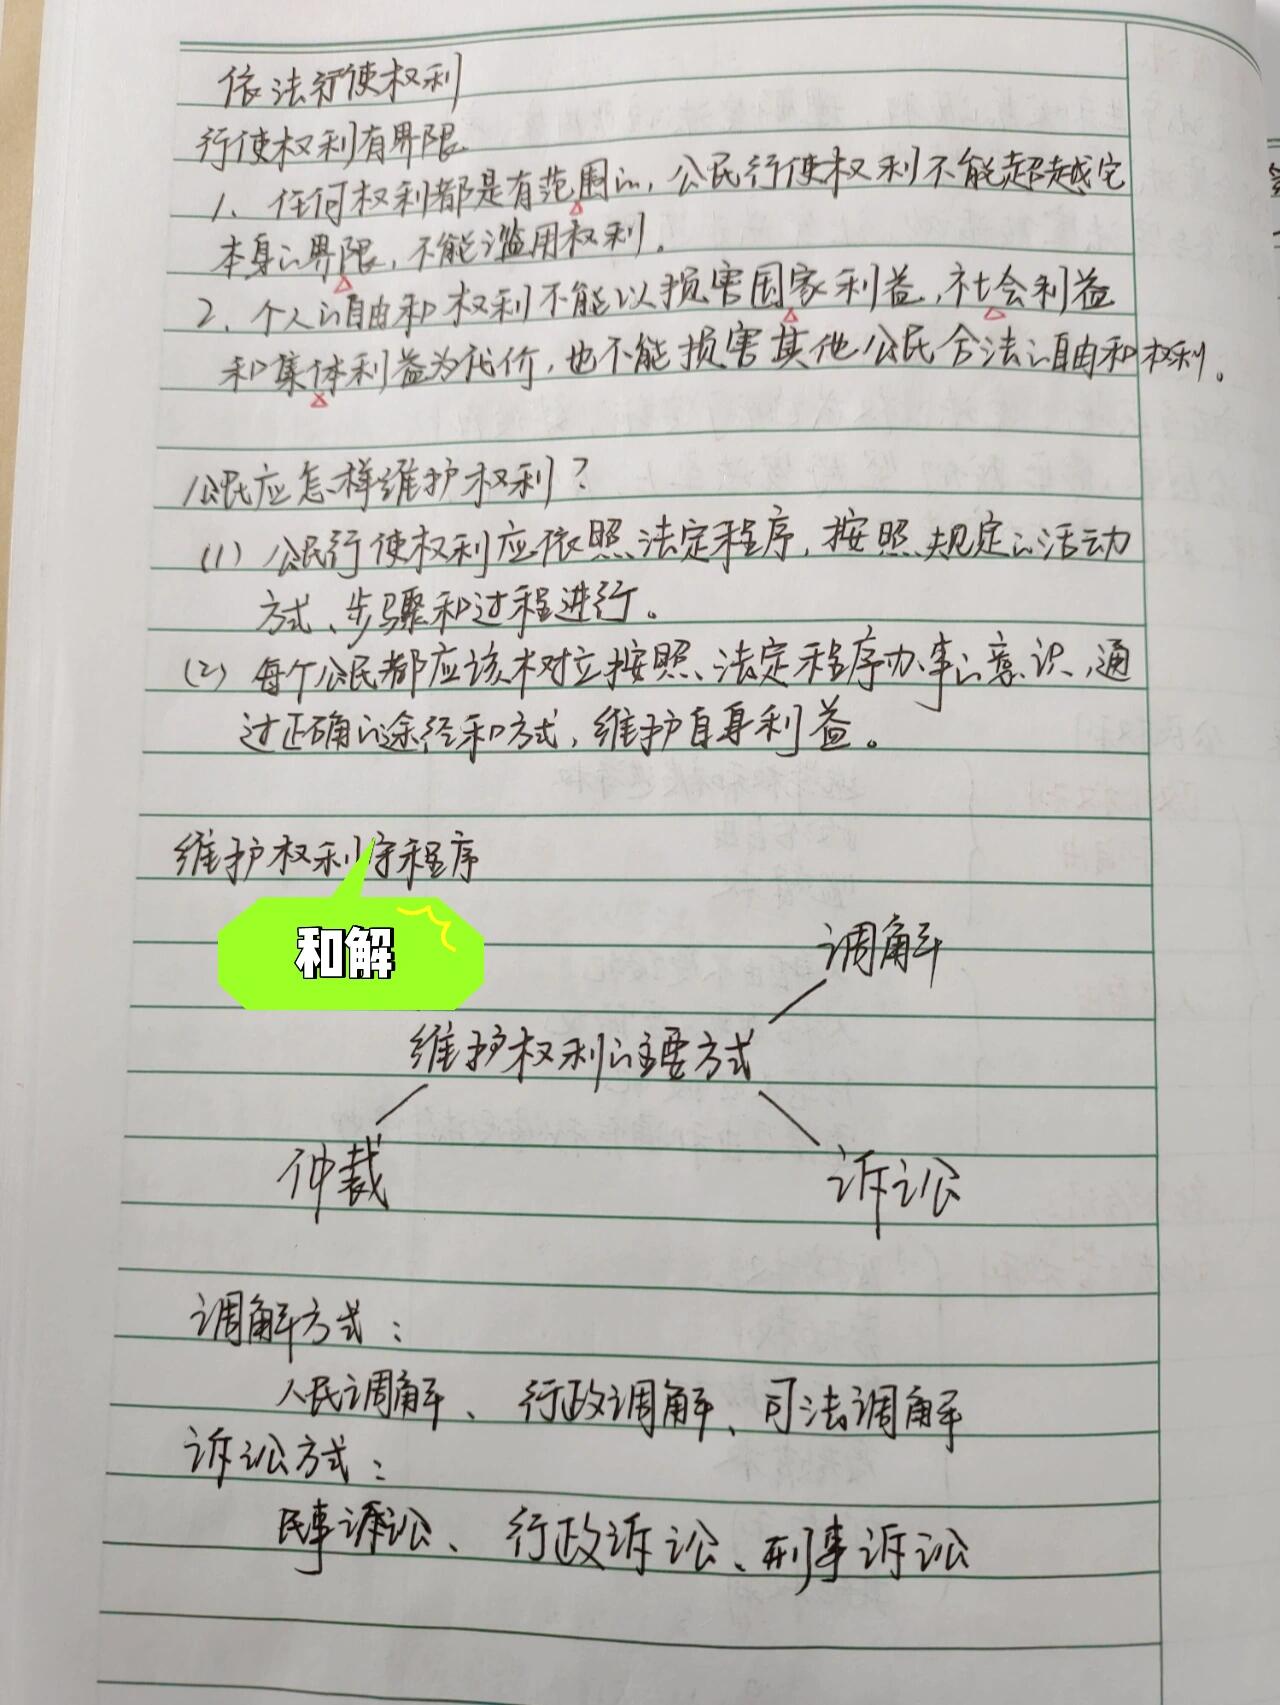 依法行使权利
行使权利有界限
1、任何权利都是有范围的,公民行使权利不能超越它
本身的界限,不能滥用权利。
2、个人的自由和权利不能以损害国家利益,社会利益
和集体利益为代价,也不能损害其他公民合法的自由和权利。
公民应怎样维护权利?
(1)公民行使权利应依照法定程序,按照规定的活动
方式、步骤和过程进行。
(2)每个公民都应该木对立按照法定程序办事的意识,通
过正确的途径和方式,维护自身利益。
维护权利守程序
和解
调解
维护权利的主要方式
仲裁
诉讼
调解方式:
人民调解、行政调解、司法调解
诉讼方式:
民事诉讼、行政诉讼、刑事诉讼